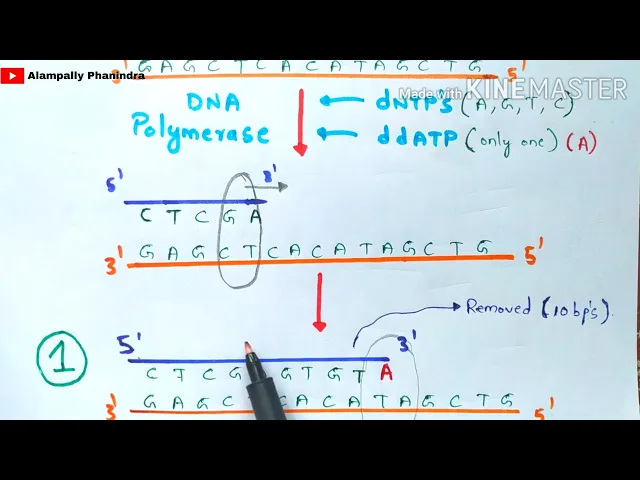 Alampally Phanindra
3' G A G C T C A C A T A G C T G 5'
Made with KINEMASTER
DNA Polymerase
dNTP's (A, G, T, C)
ddATP (only one) (A)
5' 3'
C T C G A
3' G A G C T C A C A T A G C T G 5'
Removed (10bp's).
1
5' 3'
C T C G G T G T A
3' G A G C C A C A T A G C T G 5'